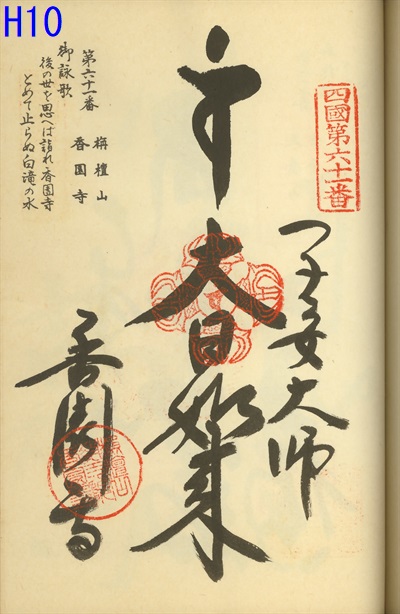 H10
四國第六十一番
子安大師
大日如来
香園寺
第六十一番
栴檀山
香園寺
御詠歌
後の世を思へば詣れ香園寺
とめて止らぬ白滝の水